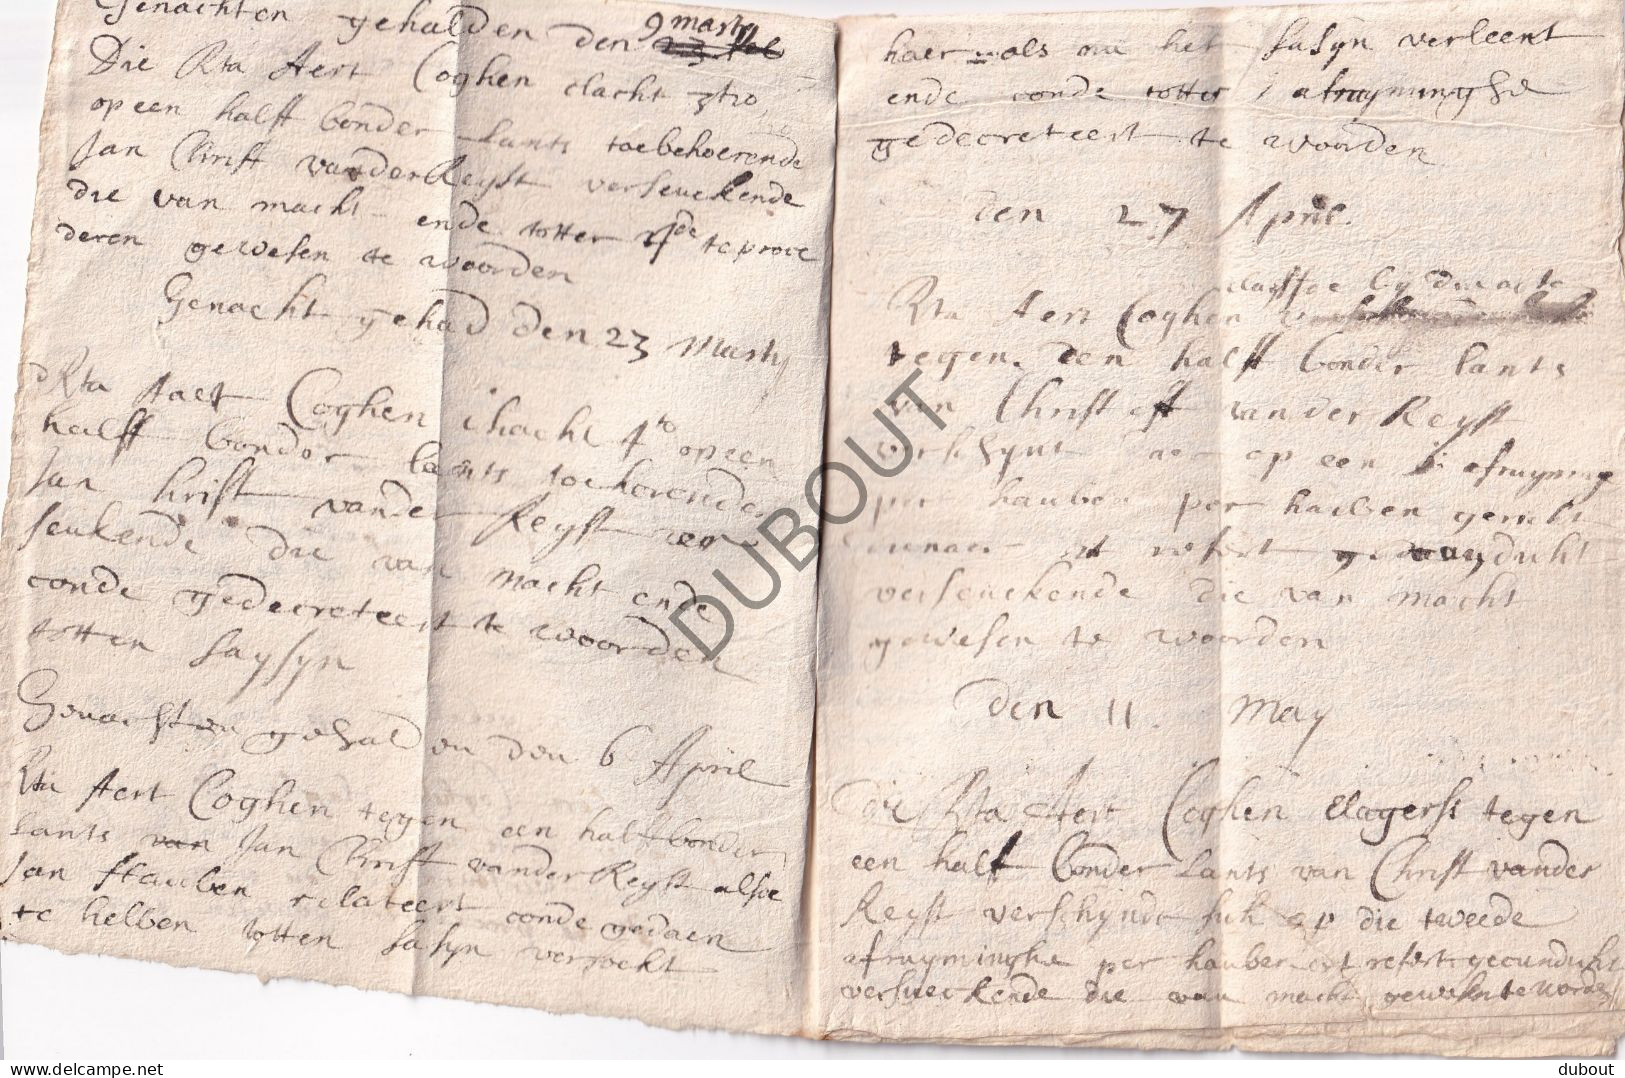 Genachten gehalden den 9 marty
Die Rta Aert Coghen clacht 3tio
op een halff bonder lants toebehoerende
Jan Christ vander Reyst verseuckende
die van macht ende totter 4de te proce
deren gewesen te woorden
Genacht gehad den 23 Marty
dRta Aert Coghen clacht 4to op een
halff bonder lants toehorende
Jan Christ vander Reyst ver
seukende die van macht ende
conde gedecreteert te woorden
totten saysyn
Genachten gehalden den 6 April
Rta Aert Coghen tegen een half bonder
lants van Jan Christ vander Reyst alsoe
Jan stauben relateert conde gedaen
te helben totten sasyn versockt
haer als nu het sasyn verleent
ende conde totter 1 afruyminghe
gedecreteert te woorden
den 27 April
Rta Aert Coghen by die acte
tegen den half bonder lants
van Christoff vander Reyst
verschynt op een afruyming
per hauben per hauben
refert
verseuckende die van macht
gewesen te woorden
den 11 May
die Rta Aert Coghen clagers tegen
een half bonder lants van Christ vander
Reyst verschynde sich op die tweede
afruyminghe per hauber ut refert gecundicht
versueckende die van macht gewesen te worden
DUBOUT
delcampe.net
dubout